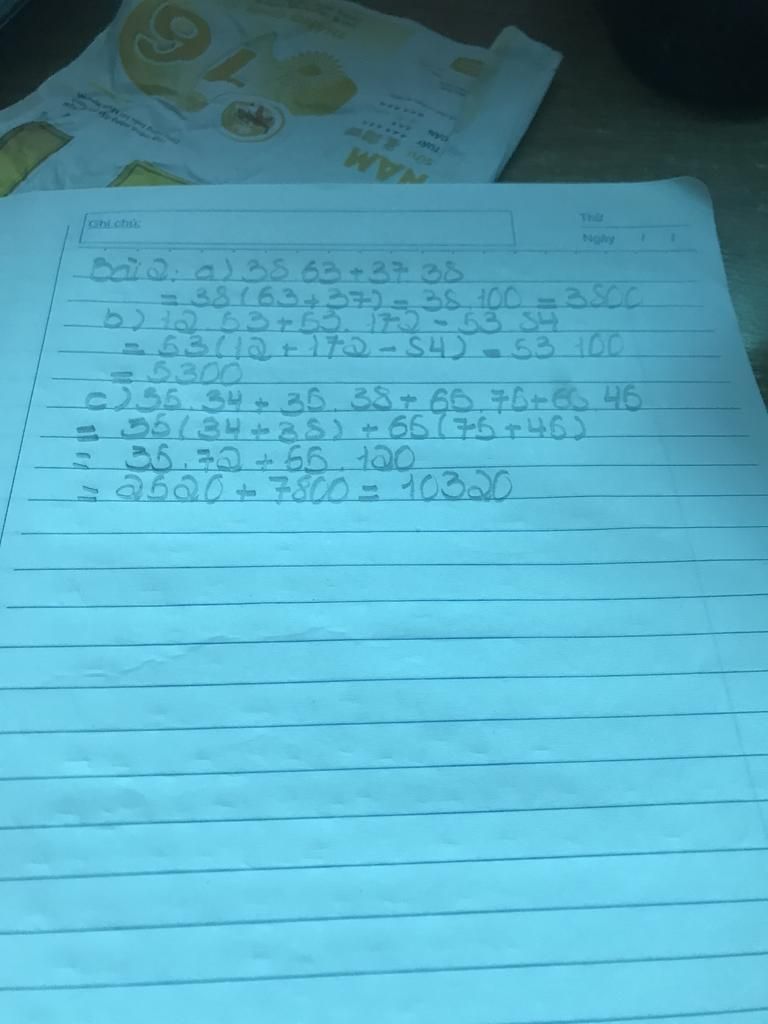 91
NAM
Ghi chú:
Thứ
Ngày / /
Bài 2: a) 38.63+37.38
= 38(63+37) = 38.100 = 3800
b) 12.53+53.172-53.84
= 53(12+172-84) = 53.100
= 5300
c) 35.34+35.38+65.75+65.45
= 35(34+38)+65(75+45)
= 35.72+65.120
= 2520+7800= 10320